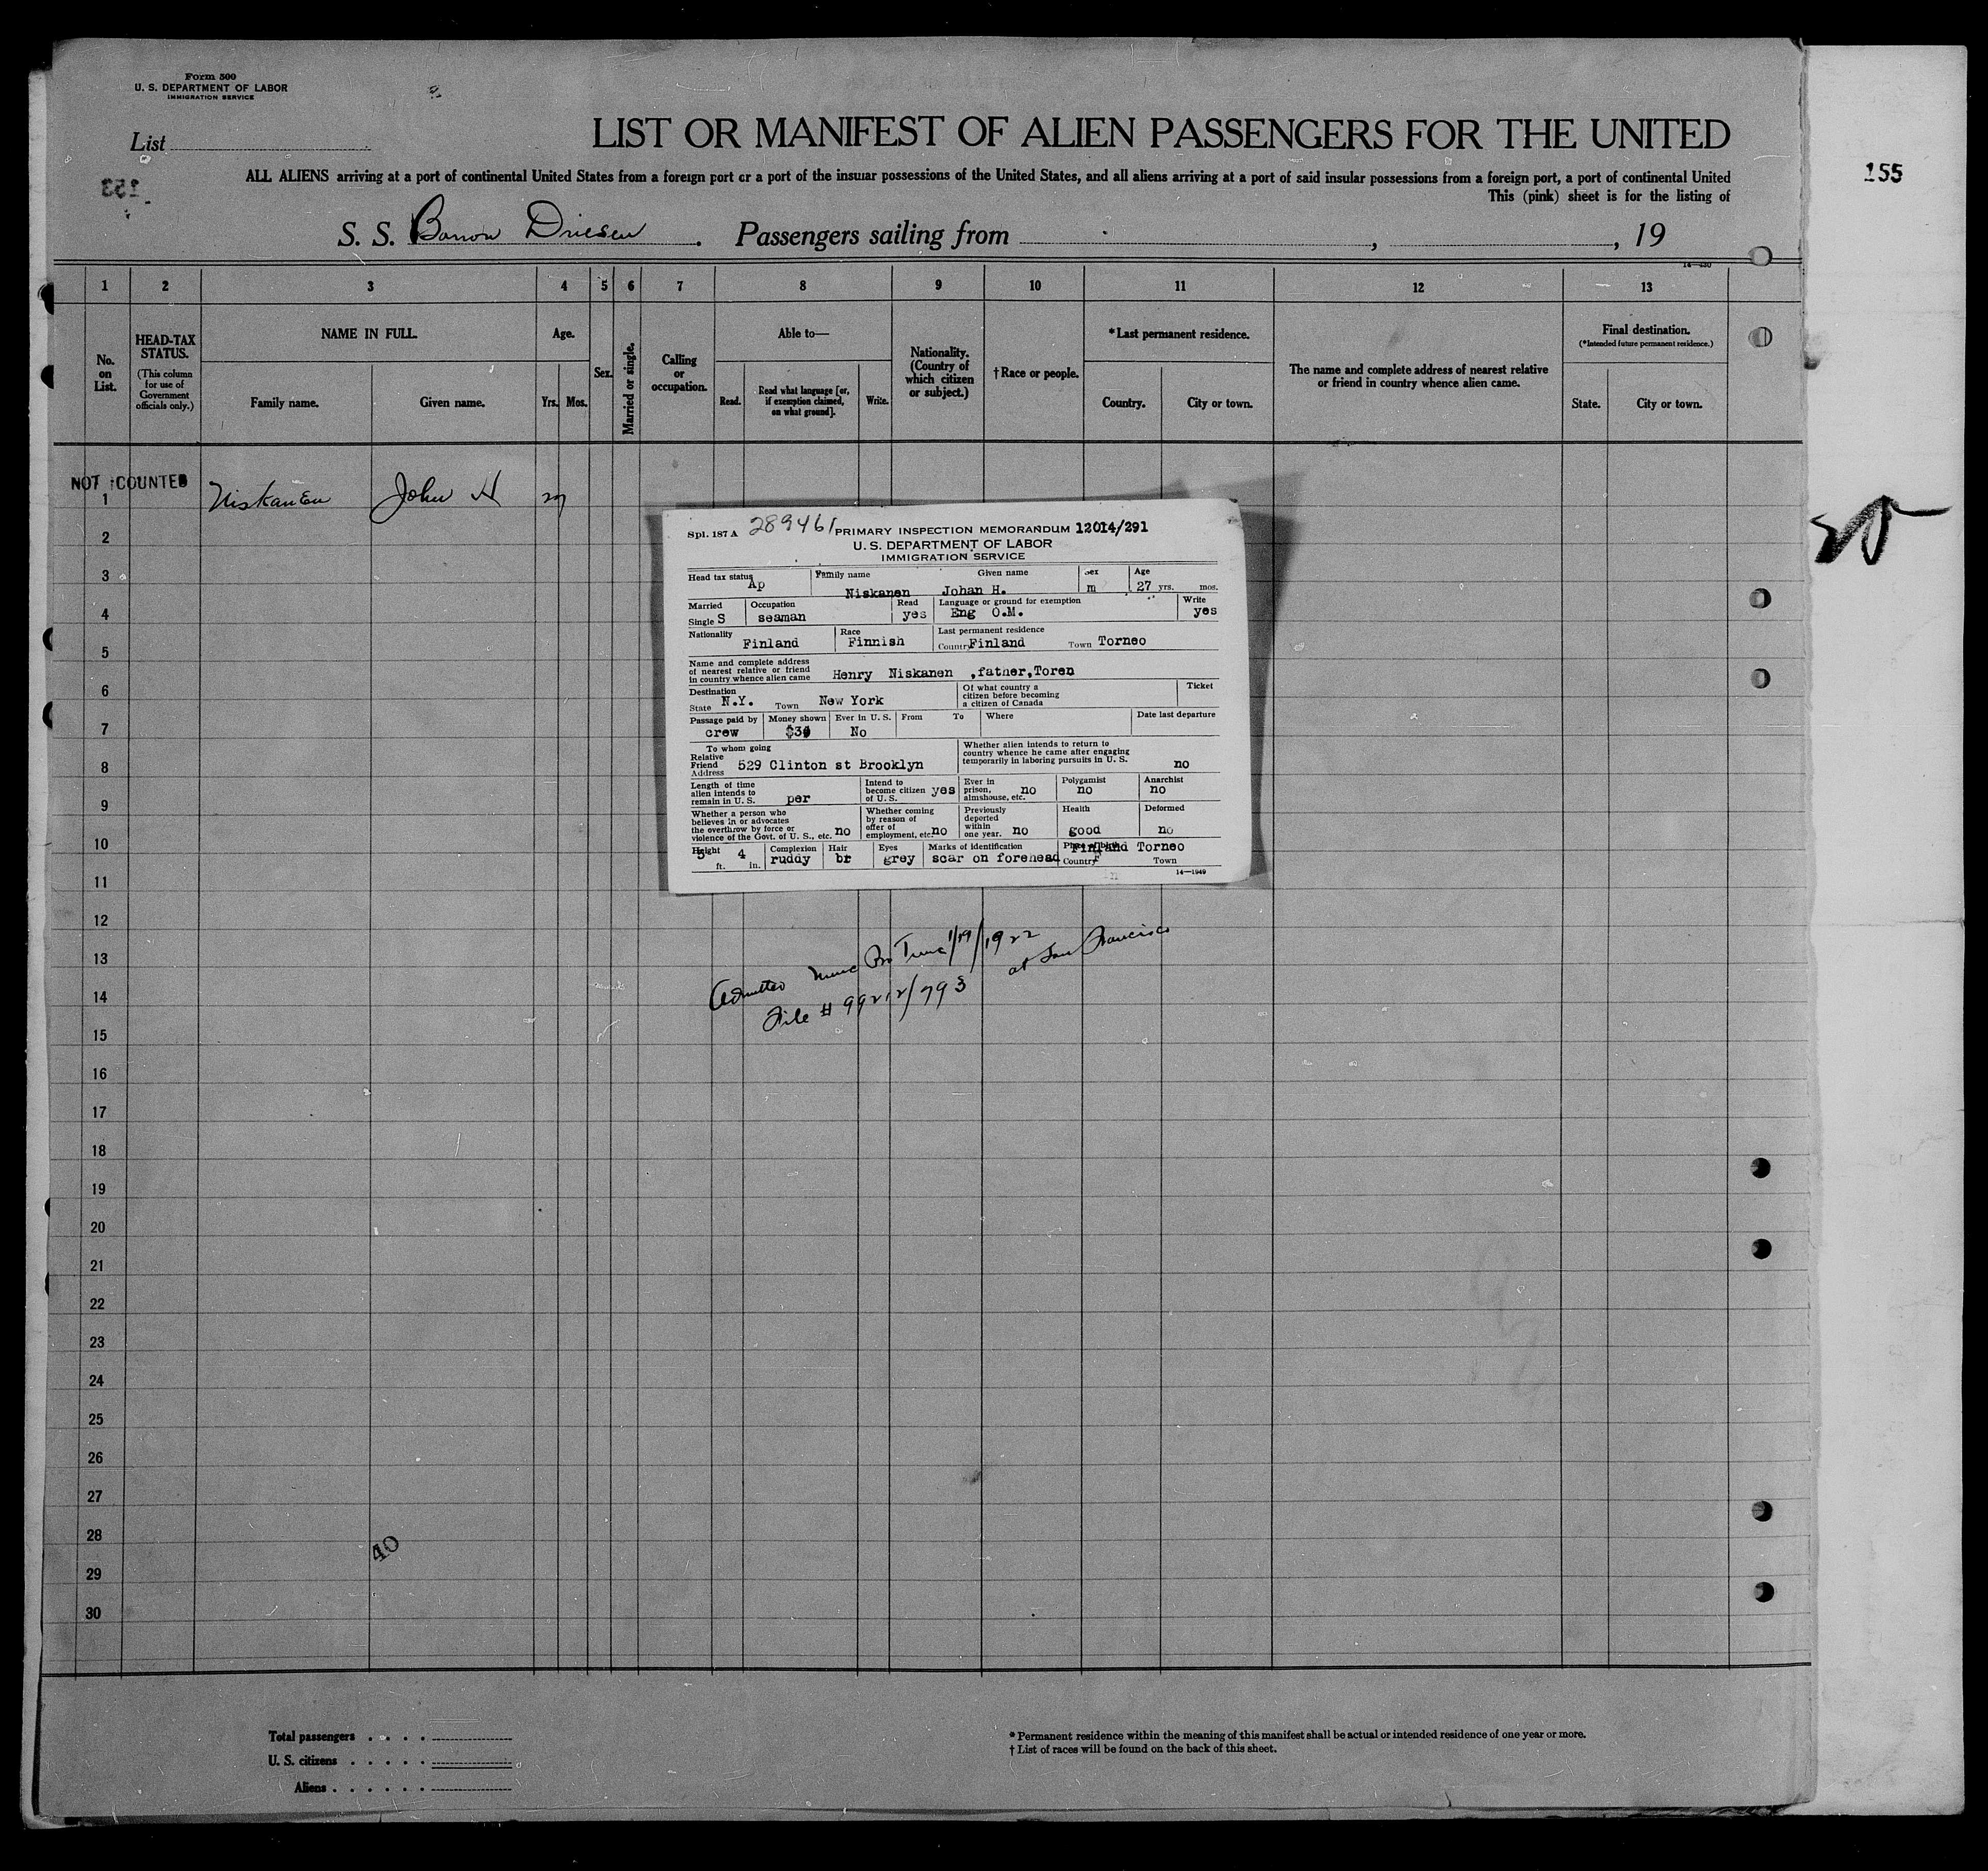 Form 500
U. S. DEPARTMENT OF LABOR
IMMIGRATION SERVICE
List
LIST OR MANIFEST OF ALIEN PASSENGERS FOR THE UNITED
155
153
ALL ALIENS arriving at a port of continental United States from a foreign port or a port of the insular possessions of the United States, and all aliens arriving at a port of said insular possessions from a foreign port, a port of continental United
This (pink) sheet is for the listing of
S. S. Baron Driesen . Passengers sailing from , , 19
14—430
1 2 3 4 5 6 7 8 9 10 11 12 13
No. on List.
HEAD-TAX STATUS.
(This column for use of Government officials only.)
NAME IN FULL.
Family name. Given name.
Age.
Yrs. Mos.
Sex.
Married or single.
Calling or occupation.
Able to—
Read. Read what language [or, if exemption claimed, on what ground]. Write.
Nationality. (Country of which citizen or subject.)
†Race or people.
*Last permanent residence.
Country. City or town.
The name and complete address of nearest relative or friend in country whence alien came.
Final destination.
(*Intended future permanent residence.)
State. City or town.
NOT COUNTED
1 Niskanen John H 27
20
Spl. 187 A 289461 PRIMARY INSPECTION MEMORANDUM 12014/291
U. S. DEPARTMENT OF LABOR
IMMIGRATION SERVICE
Head tax status Family name Given name Sex Age
Ap Niskanen Johan H. m 27 yrs. mos.
Married Occupation Read Language or ground for exemption Write
Single S seaman yes Eng O.M. yes
Nationality Race Last permanent residence
Finland Finnish Country Finland Town Torneo
Name and complete address
of nearest relative or friend
in country whence alien came Henry Niskanen ,father,Toren
Destination Of what country a citizen before becoming a citizen of Canada Ticket
State N.Y. Town New York
Passage paid by Money shown Ever in U. S. From To Where Date last departure
crew $30 No
To whom going Whether alien intends to return to
Relative country whence he came after engaging
Friend 529 Clinton st Brooklyn temporarily in laboring pursuits in U. S. no
Address
Length of time alien intends to remain in U. S. per Intend to become citizen of U. S. yes Ever in prison, almshouse, etc. no Polygamist no Anarchist no
Whether a person who believes in or advocates the overthrow by force or violence of the Govt. of U. S., etc. no Whether coming by reason of offer of employment, etc. no Previously deported within one year. no Health good Deformed no
Height Complexion Hair Eyes Marks of identification Place of birth
5 ft. 4 in. ruddy br grey scar on forehead Finland Torneo
Country Town
14—1949
2
3
4
5
6
7
8
9
10
11
12
13
14
15
16
17
18
19
20
21
22
23
24
25
26
27
28
29
30
Admitted Nunc Pro Tunc 1/19/1922
at San Francisco
File # 99212/793
40
Total passengers . . . .
U. S. citizens . . . . .
Aliens . . . . . .
* Permanent residence within the meaning of this manifest shall be actual or intended residence of one year or more.
† List of races will be found on the back of this sheet.